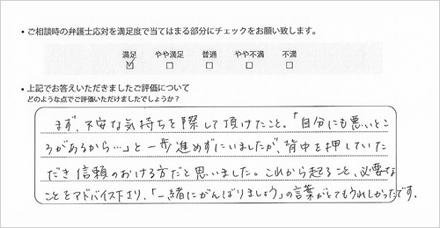 ・ご相談時の弁護士応対を満足度で当てはまる部分にチェックをお願い致します。
満足 やや満足 普通 やや不満 不満
・上記でお答えいただきましたご評価について
どのような点でご評価いただけましたでしょうか？
まず、不安な気持ちを察して頂けたこと。「自分にも悪いとこ
ろがあるから…」と一歩進めずにいましたが、背中を押していた
だき信頼のおける方だと思いました。これから起ること、必要な
ことをアドバイス下さり、「一緒にがんばりましょう」の言葉がとてもうれしかったです。